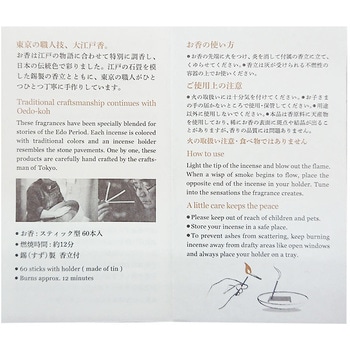 東京の職人技、大江戸香。
お香は江戸の物語に合わせて特別に調香し、
日本の伝統色で彩りました。江戸の石畳を模
した錫製の香立とともに、東京の職人がひと
つひとつ丁寧に手作りしています。
Traditional craftsmanship continues with
Oedo-koh
These fragrances have been specially blended for
stories of the Edo Period. Each incense is colored
with traditional colors and an incense holder
resembles the stone pavements. One by one, these
products are carefully hand crafted by the crafts-
man of Tokyo.
●お香：スティック型 60本入
●燃焼時間：約12分
●錫（すず）製 香立付
●60 sticks with holder ( made of tin )
●Burns approx. 12 minutes
お香の使い方
●お香の先端に火をつけ、炎を消して付属の香立に立て、
くゆらせてください。●香立は灰が受けられる不燃性の
容器の上でお使いください。
ご使用上の注意
●火の取扱いには十分気を付けてください。●お子さま
の手の届かないところで使用・保管してください。●用途
以外に使用しないでください。●本品は香原料に天然物
を使用しており、稀にお香の表面に斑点や結晶が出るこ
とがありますが、香りの品質には問題ありません。
火の取扱い注意・食べ物ではありません
How to use
Light the tip of the incense and blow out the flame.
When a wisp of smoke begins to flow, place the
opposite end of the incense in your holder. Tune
into the sensations the fragrance creates.
A little care keeps the peace
●Please keep out of reach of children and pets.
●Store your incense in a safe place.
●To prevent ashes from scattering, keep burning
incense away from drafty areas like open windows
and always place your holder on a tray.